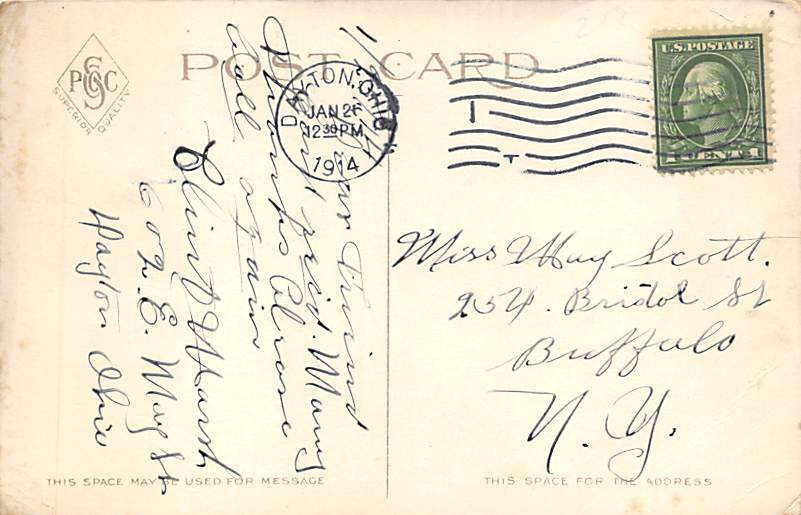 POST CARD
PCSC
SUPERIOR QUALITY
DAYTON, OHIO
JAN 26
12 30 PM
1914
U.S. POSTAGE
1 CENT 1
Dear Friend
Card recd. Many
Thanks Please
Call again
Clint Marsh
602. E. May St
Dayton Ohio
Miss May Scott.
254. Bristol St
Buffalo
N. Y.
THIS SPACE MAY BE USED FOR MESSAGE
THIS SPACE FOR THE ADDRESS